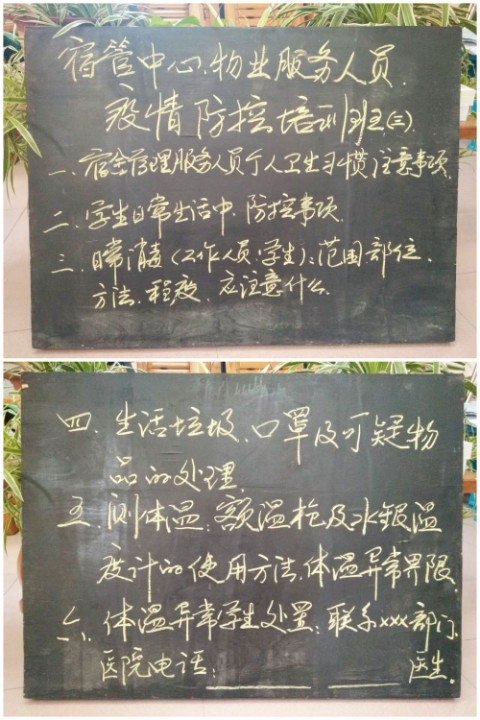 宿管中心、物业服务人员
疫情防控培训班(三)
一、宿舍管理服务人员个人卫生习惯注意事项
二、学生日常生活中、防控事项
三、日常消毒(工作人员、学生)、范围部位、
方法、程度、应注意什么
四、生活垃圾、口罩及可疑物
品的处理
五、测体温:额温枪及水银温
度计的使用方法、体温异常界限
六、体温异常学生处置:联系xxx部门、
医院电话:________ ____医生。